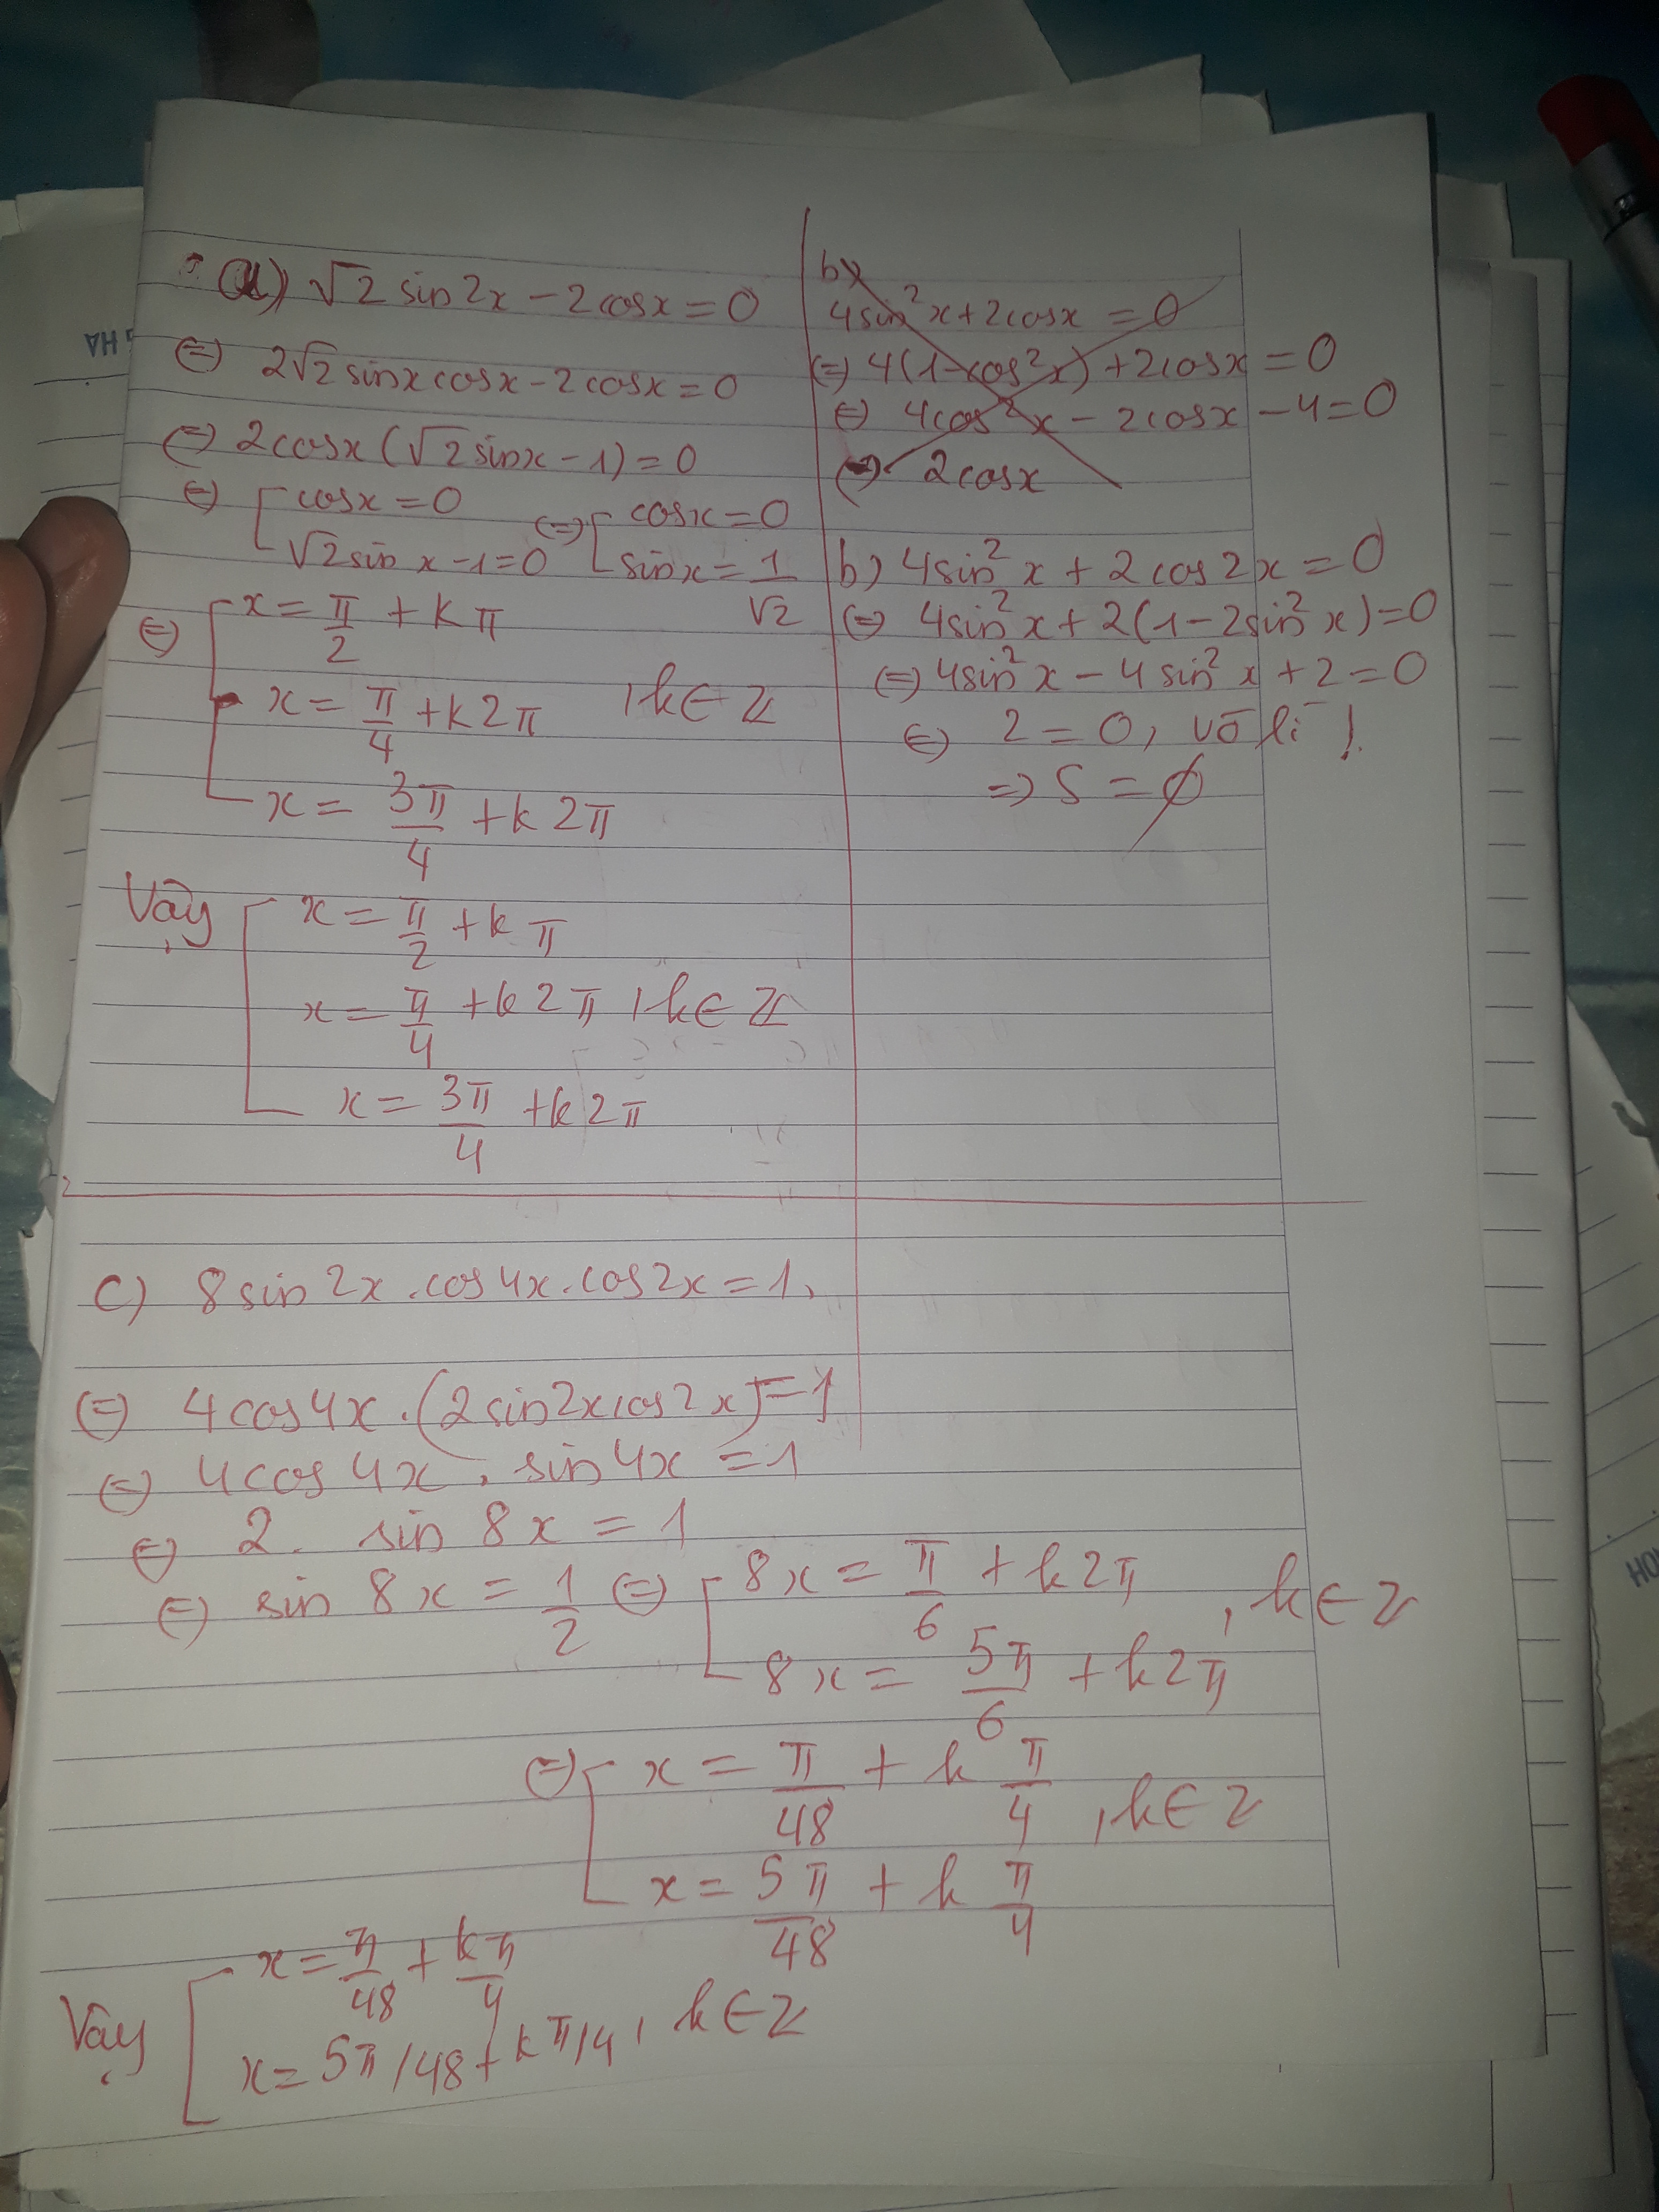 a) √2 sin2x - 2cosx = 0
(=) 2√2 sinxcosx - 2cosx = 0
(=) 2cosx (√2 sinx - 1) = 0
(=) [ cosx = 0
√2 sin x - 1 = 0
(=) [ cosx = 0
sinx = 1/√2
(=) [ x = π/2 + kπ
x = π/4 + k2π , k ∈ Z
x = 3π/4 + k2π
Vậy [ x = π/2 + kπ
x = π/4 + k2π , k ∈ Z
x = 3π/4 + k2π
b)
4sin²x + 2cosx = 0
(=) 4(1 - cos²x) + 2cosx = 0
(=) 4cos²x - 2cosx - 4 = 0
(=) 2cosx
b) 4sin²x + 2cos2x = 0
(=) 4sin²x + 2(1 - 2sin²x) = 0
(=) 4sin²x - 4sin²x + 2 = 0
(=) 2 = 0, vô lí !
=> S = ∅
c) 8sin2x . cos4x . cos2x = 1.
(=) 4cos4x . (2sin2xcos2x) = 1
(=) 4cos4x . sin4x = 1
(=) 2 . sin 8x = 1
(=) sin 8x = 1/2 (=) [ 8x = π/6 + k2π , k ∈ Z
8x = 5π/6 + k2π
(=) [ x = π/48 + k π/4 , k ∈ Z
x = 5π/48 + k π/4
Vậy [ x = π/48 + kπ/4
x = 5π/48 + kπ/4 , k ∈ Z